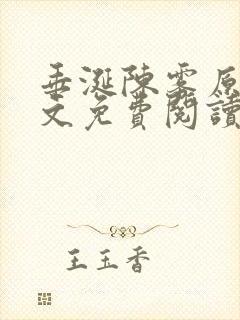 垂涎陳雾原
文免費閱讀
王玉香